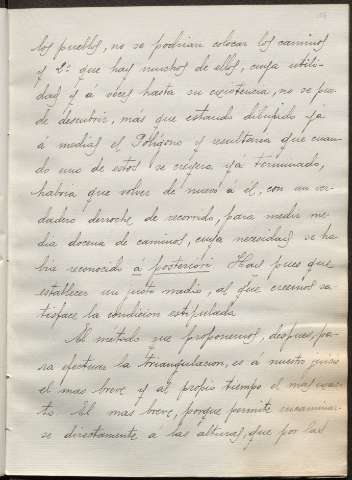 los pueblos, no se podrian colocar los caminos
y 2º que hay muchos de ellos, cuya utili-
dad y á veces hasta su existencia, no se pue-
de descubrir, más que estando dibujado yá
á medias el Polígono y resultaria que cuan-
do uno de estos se creyera yá terminado,
habria que volver de nuevo á él, con un ver-
dadero derroche de recorrido, para medir me-
dia docena de caminos, cuya necesidad se ha-
bia reconocido á posteriori. Hay pues que
establecer un justo medio, al que creemos sa-
tisface la condición estipulada.
El método que proponemos, después, pa-
ra efectuar la triangulacion, es á nuestro juicio
el mas breve y al propio tiempo el mas exac-
to. El mas breve, porque permite encaminar-
se directamente á las alturas, que por las